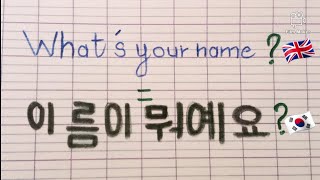 What's your name ?
=
이름이 뭐예요?